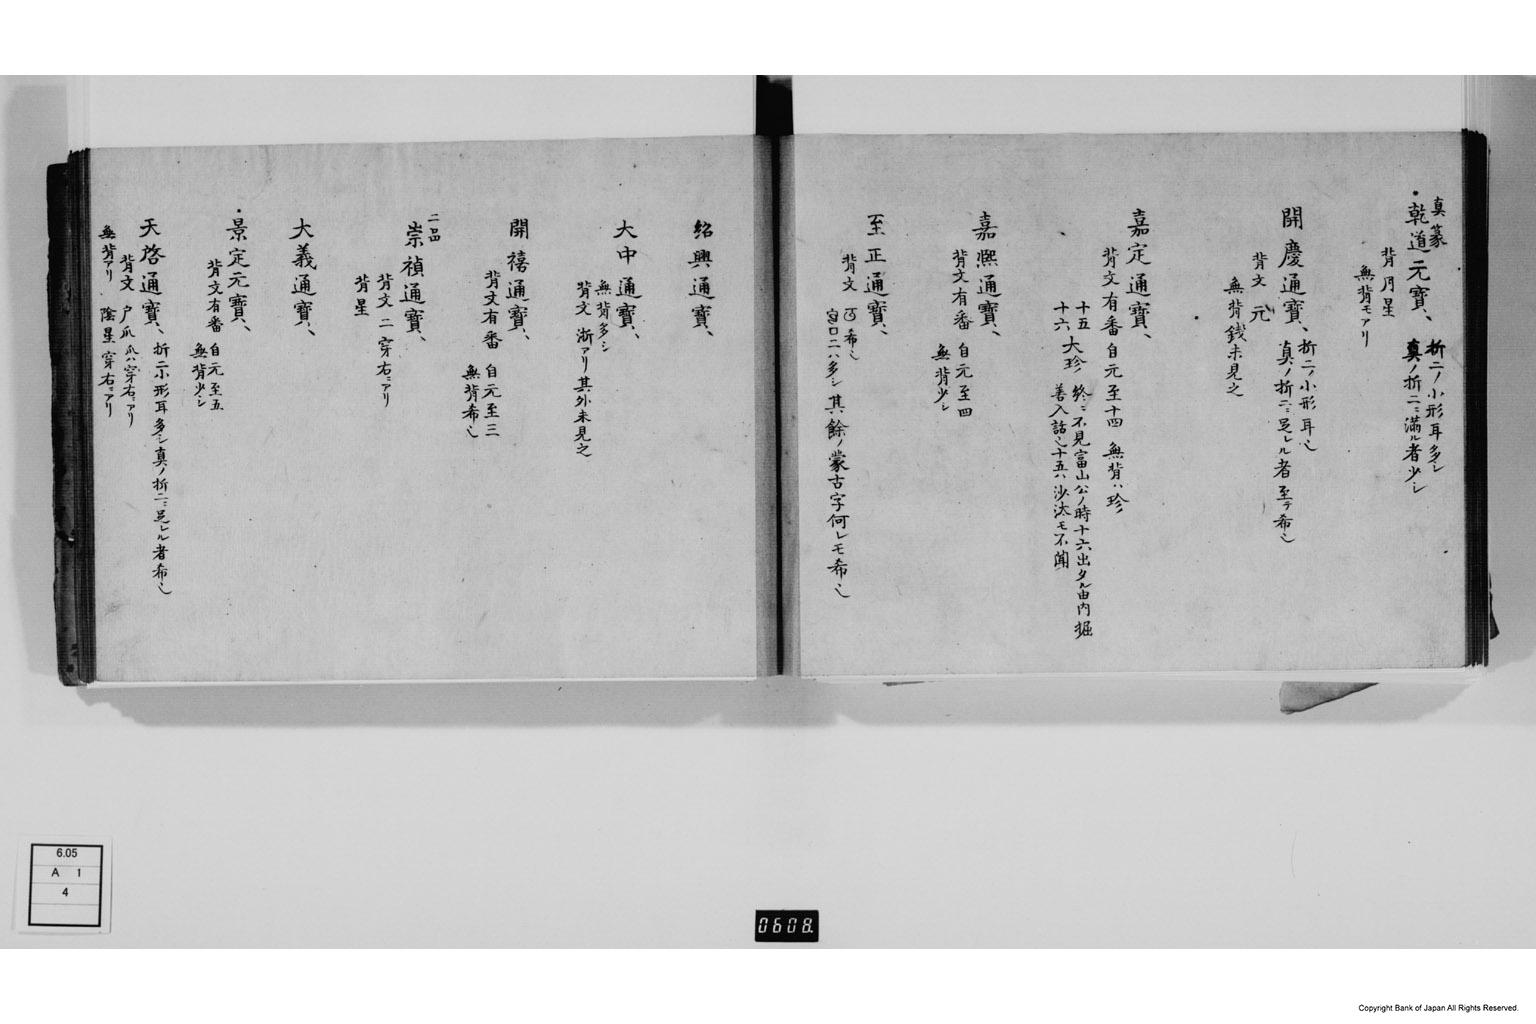 真篆
乾道元寳、 折二ノ小形耳多シ
真ノ折二ニ満ル者少シ
背月星
無背モアリ
開慶通寳、 折二ノ小形耳也
真ノ折二ニ足レル者至テ希也
背文 元
無背錢未見之
嘉定通寳、
背文有番 自元至十四 無背ハ珍
十五
十六 大珍 終ニ不見富山公ノ時十六出タル由内掘
善入話也十五ハ沙汰モ不聞
嘉熙通寳、
背文有番 自元至四
無背少シ
至正通寳、
背文 希也
ハ多シ其餘ノ蒙古字何レモ希也
紹興通寳、
大中通寳、
無背多シ
背文 浙アリ其外未見之
開禧通寳、
背文有番 自元至三
無背希也
二品
崇禎通寳、
背文二穿右ニアリ
背星
大義通寳、
景定元寳、
背文有番 自元至五
無背少シ
天啓通寳、 折二小形耳多シ真ノ折二ニ足レル者希也
背文 戸爪 爪ハ穿右ニアリ
無背アリ 陰星穿右ニアリ
6.05
A 1
4
0608.
Copyright Bank of Japan All Rights Reserved.